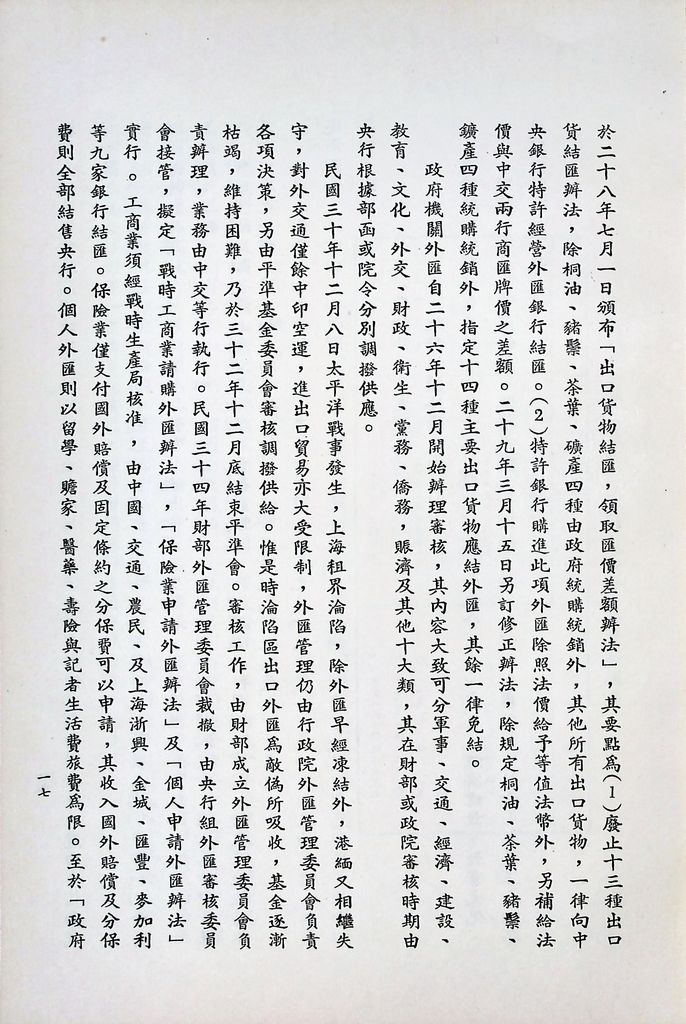 於二十八年七月一日頒布「出口貨物結匯，領取匯價差額辦法」，其要點爲(1)廢止十三種出口
貨結匯辦法，除桐油、豬鬃、茶葉、礦產四種由政府統購統銷外，其他所有出口貨物，一律向中
央銀行特許經營外匯銀行結匯。(2)特許銀行購進此項外匯除照法價給予等值法幣外，另補給法
價與中交兩行商匯牌價之差額。二十九年三月十五日另訂修正辦法，除規定桐油、茶葉、豬鬃、
鑛產四種統購統銷外，指定十四種主要出口貨物應結外匯，其餘一律免結。
政府機關外匯自二十六年十二月開始辦理審核，其內容大致可分軍事、交通、經濟、建設、
教育、文化、外交、財政、衛生、黨務、僑務，賑濟及其他十大類，其在財部或政院審核時期由
央行根據部函或院令分別調撥供應。
民國三十年十二月八日太平洋戰事發生，上海租界淪陷，除外匯早經凍結外，港緬又相繼失
守，對外交通僅餘中印空運，進出口貿易亦大受限制，外匯管理仍由行政院外匯管理委員會負責
各項決策，另由平準基金委員會審核調撥供給。惟是時淪陷區出口外匯爲敵僞所吸收，基金逐漸
枯竭，維持困難，乃於三十二年十二月底結束平準會。審核工作，由財部成立外匯管理委員會負
責辦理，業務由中交等行執行。民國三十四年財部外匯管理委員會裁撤，由央行組外匯審核委員
會接管，擬定「戰時工商業請購外匯辦法」，「保險業申請外匯辦法」及「個人申請外匯辦法」
實行。工商業須經戰時生產局核准，由中國、交通、農民、及上海浙興、金城、匯豐、麥加利
等九家銀行結匯。保險業僅支付國外賠償及固定條約之分保費可以申請，其收入國外賠償及分保
費則全部結售央行。個人外匯則以留學、贍家、醫藥、壽險與記者生活費旅費爲限。至於「政府
一七